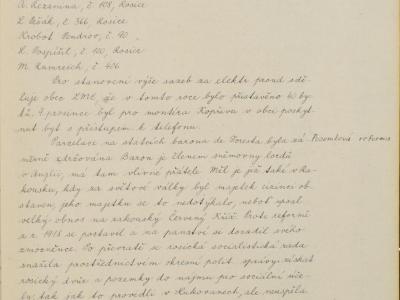 A. Rezanina, č. 108, Rosice
L. Ušák, č. 366, Rosice
Krobot Vendrov, č. 40
K. Pospíšil, č. 100, Rosice
M. Kumreich, č. 406
Pro stanovení výše sazeb za elektr. proud sdě-
luje obec ZME, že v tomto roce bylo přistavěno 40 by-
tů. 1. prosince byl pro montéra Kopřiva v obci poskyt-
nut byt s přístupem k telefonu.
Parcelace na statcích barona de Foresta byla zá-
měrně zdržována. Baron je členem sněmovny lordů
v Anglii, má tam vlivné přátele. Měl je již také v Ra-
kousku, kdy za světové války byl majetek cizinců ob-
staven, jeho majetku se to nedotýkalo, neboť upsal
velký obnos na rakouský Červený Kříž. Proti reformě
a r. 1918 se postavil a na panství se dosadil svého
zmocněnce. Po převratě se rosická socialistická rada
snažila prostřednictvím okresní polit. správy získat
rosický dvůr a pozemky do nájmu pro sociální úče-
ly tak jak to provedli v Hukovanech, ale neuspěla
Pozemková reforma